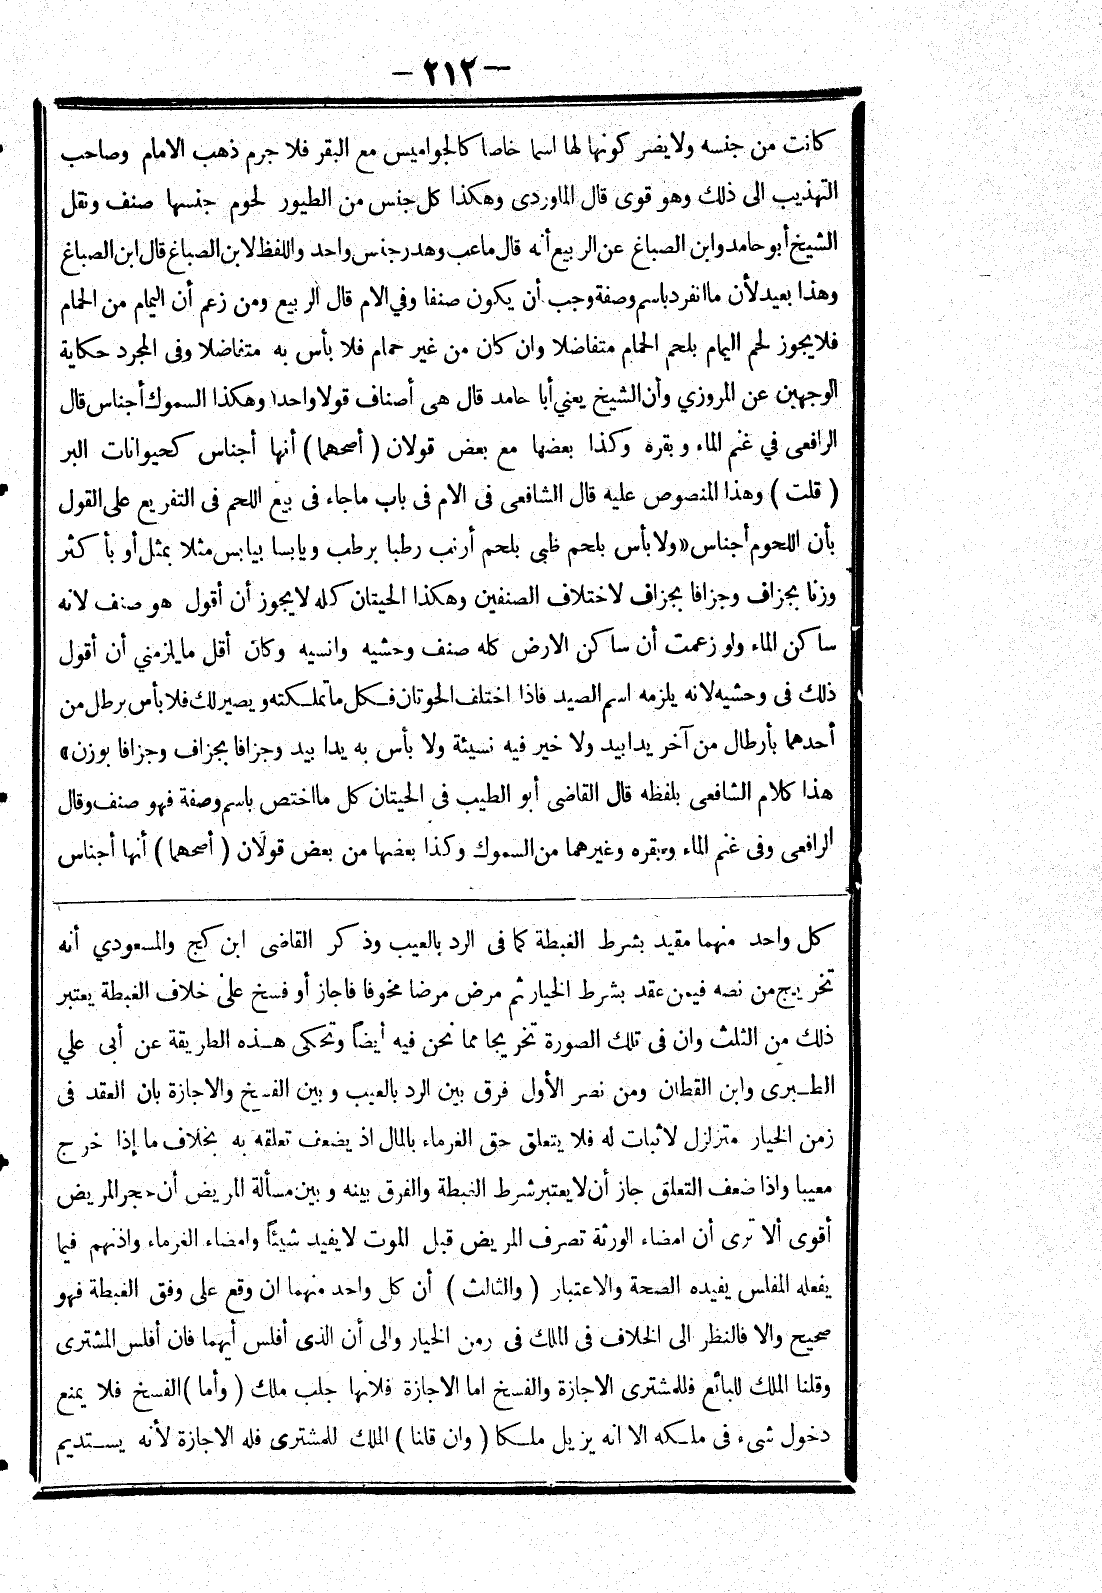 — ٢١٢ —
كانت من جنسه ولايضر كونها لها اسما خاصا كالجواميس مع البقر فلا جرم ذهب الامام وصاحب
التهذيب الى ذلك وهو قوى قال الماوردى وهكذا كل جنس من الطيور لحوم جنسها صنف ونقل
الشيخ أبو حامد وابن الصباغ عن الربيع أنه قال ماعب وهدر جنس واحد واللفظ لابن الصباغ قال ابن الصباغ
وهذا بعيد لأن ماانفرد باسم وصفة وجب أن يكون صنفا وفي الام قال الربيع ومن زعم أن اليمام من الحمام
فلا يجوز لحم اليمام بلحم الحمام متفاضلا وان كان من غير حمام فلا بأس به متفاضلا وفى المجرد حكاية
الوجهين عن المروزي وأن الشيخ يعني أبا حامد قال هى أصناف قولا واحدا وهكذا السموك أجناس قال
الرافعى في غنم الماء وبقره وكذا بعضها مع بعض قولان ( أصحهما ) أنها أجناس كحيوانات البر
( قلت ) وهذا المنصوص عليه قال الشافعى فى الام فى باب ماجاء فى بيع اللحم فى التفريع على القول
بأن اللحوم أجناس «ولا بأس بلحم ظبى بلحم أرنب رطبا برطب ويابسا بيابس مثلا بمثل أو بأكثر
وزنا بجزاف وجزافا بجزاف لاختلاف الصنفين وهكذا الحيتان كله لايجوز أن أقول هو صنف لانه
ساكن الماء ولو زعمت أن ساكن الارض كله صنف وحشيه وانسيه وكان أقل مايلزمني أن أقول
ذلك فى وحشيه لانه يلزمه اسم الصيد فاذا اختلف الحوتان فكل ماتملكته ويصير لك فلا بأس برطل من
أحدهما بأرطال من آخر يدابيد ولا خير فيه نسيئة ولا بأس به يدا بيد وجزافا بجزاف وجزافا بوزن»
هذا كلام الشافعى بلفظه قال القاضى أبو الطيب فى الحيتان كل مااختص باسم وصفة فهو صنف وقال
الرافعى وفى غنم الماء وبقره وغيرهما من السموك وكذا بعضها من بعض قولان ( أصحهما ) أنها أجناس
كل واحد منهما مقيد بشرط الغبطة كما فى الرد بالعيب وذكر القاضى ابن كج والمسعودي أنه
تخريج من نصه فيمن عقد بشرط الخيار ثم مرض مرضا مخوفا فاجاز أو فسخ على خلاف الغبطة يعتبر
ذلك من الثلث وان فى تلك الصورة تخريجا مما نحن فيه أيضاً وتحكى هـذه الطريقة عن أبى علي
الطـبرى وابن القطان ومن نصر الأول فرق بين الرد بالعيب وبين الفسخ والاجازة بان العقد فى
زمن الخيار متزلزل لاثبات له فلا يتعلق حق الغرماء بالمال اذ يضعف تعلقه به بخلاف ماإذا خرج
معيبا واذا ضعف التعلق جاز أن لايعتبر شرط الغبطة والفرق بينه وبين مسألة المريض أن حجر المريض
أقوى ألا ترى أن امضاء الورثة تصرف المريض قبل الموت لايفيد شيئاً وامضاء الغرماء واذنهم فيما
يفعله المفلس يفيده الصحة والاعتبار ( والثالث ) أن كل واحد منهما ان وقع على وفق الغبطة فهو
صحيح والا فالنظر الى الخلاف فى الملك فى زمن الخيار والى أن الذى أفلس أيهما فان أفلس المشترى
وقلنا الملك للبائع فللمشترى الاجازة والفسخ اما الاجازة فلانها جلب ملك ( وأما ) الفسخ فلا يمنع
دخول شىء فى ملـكه الا انه يزيل ملـكا ( وان قلنا ) الملك للمشترى فله الاجازة لأنه يسـتديم